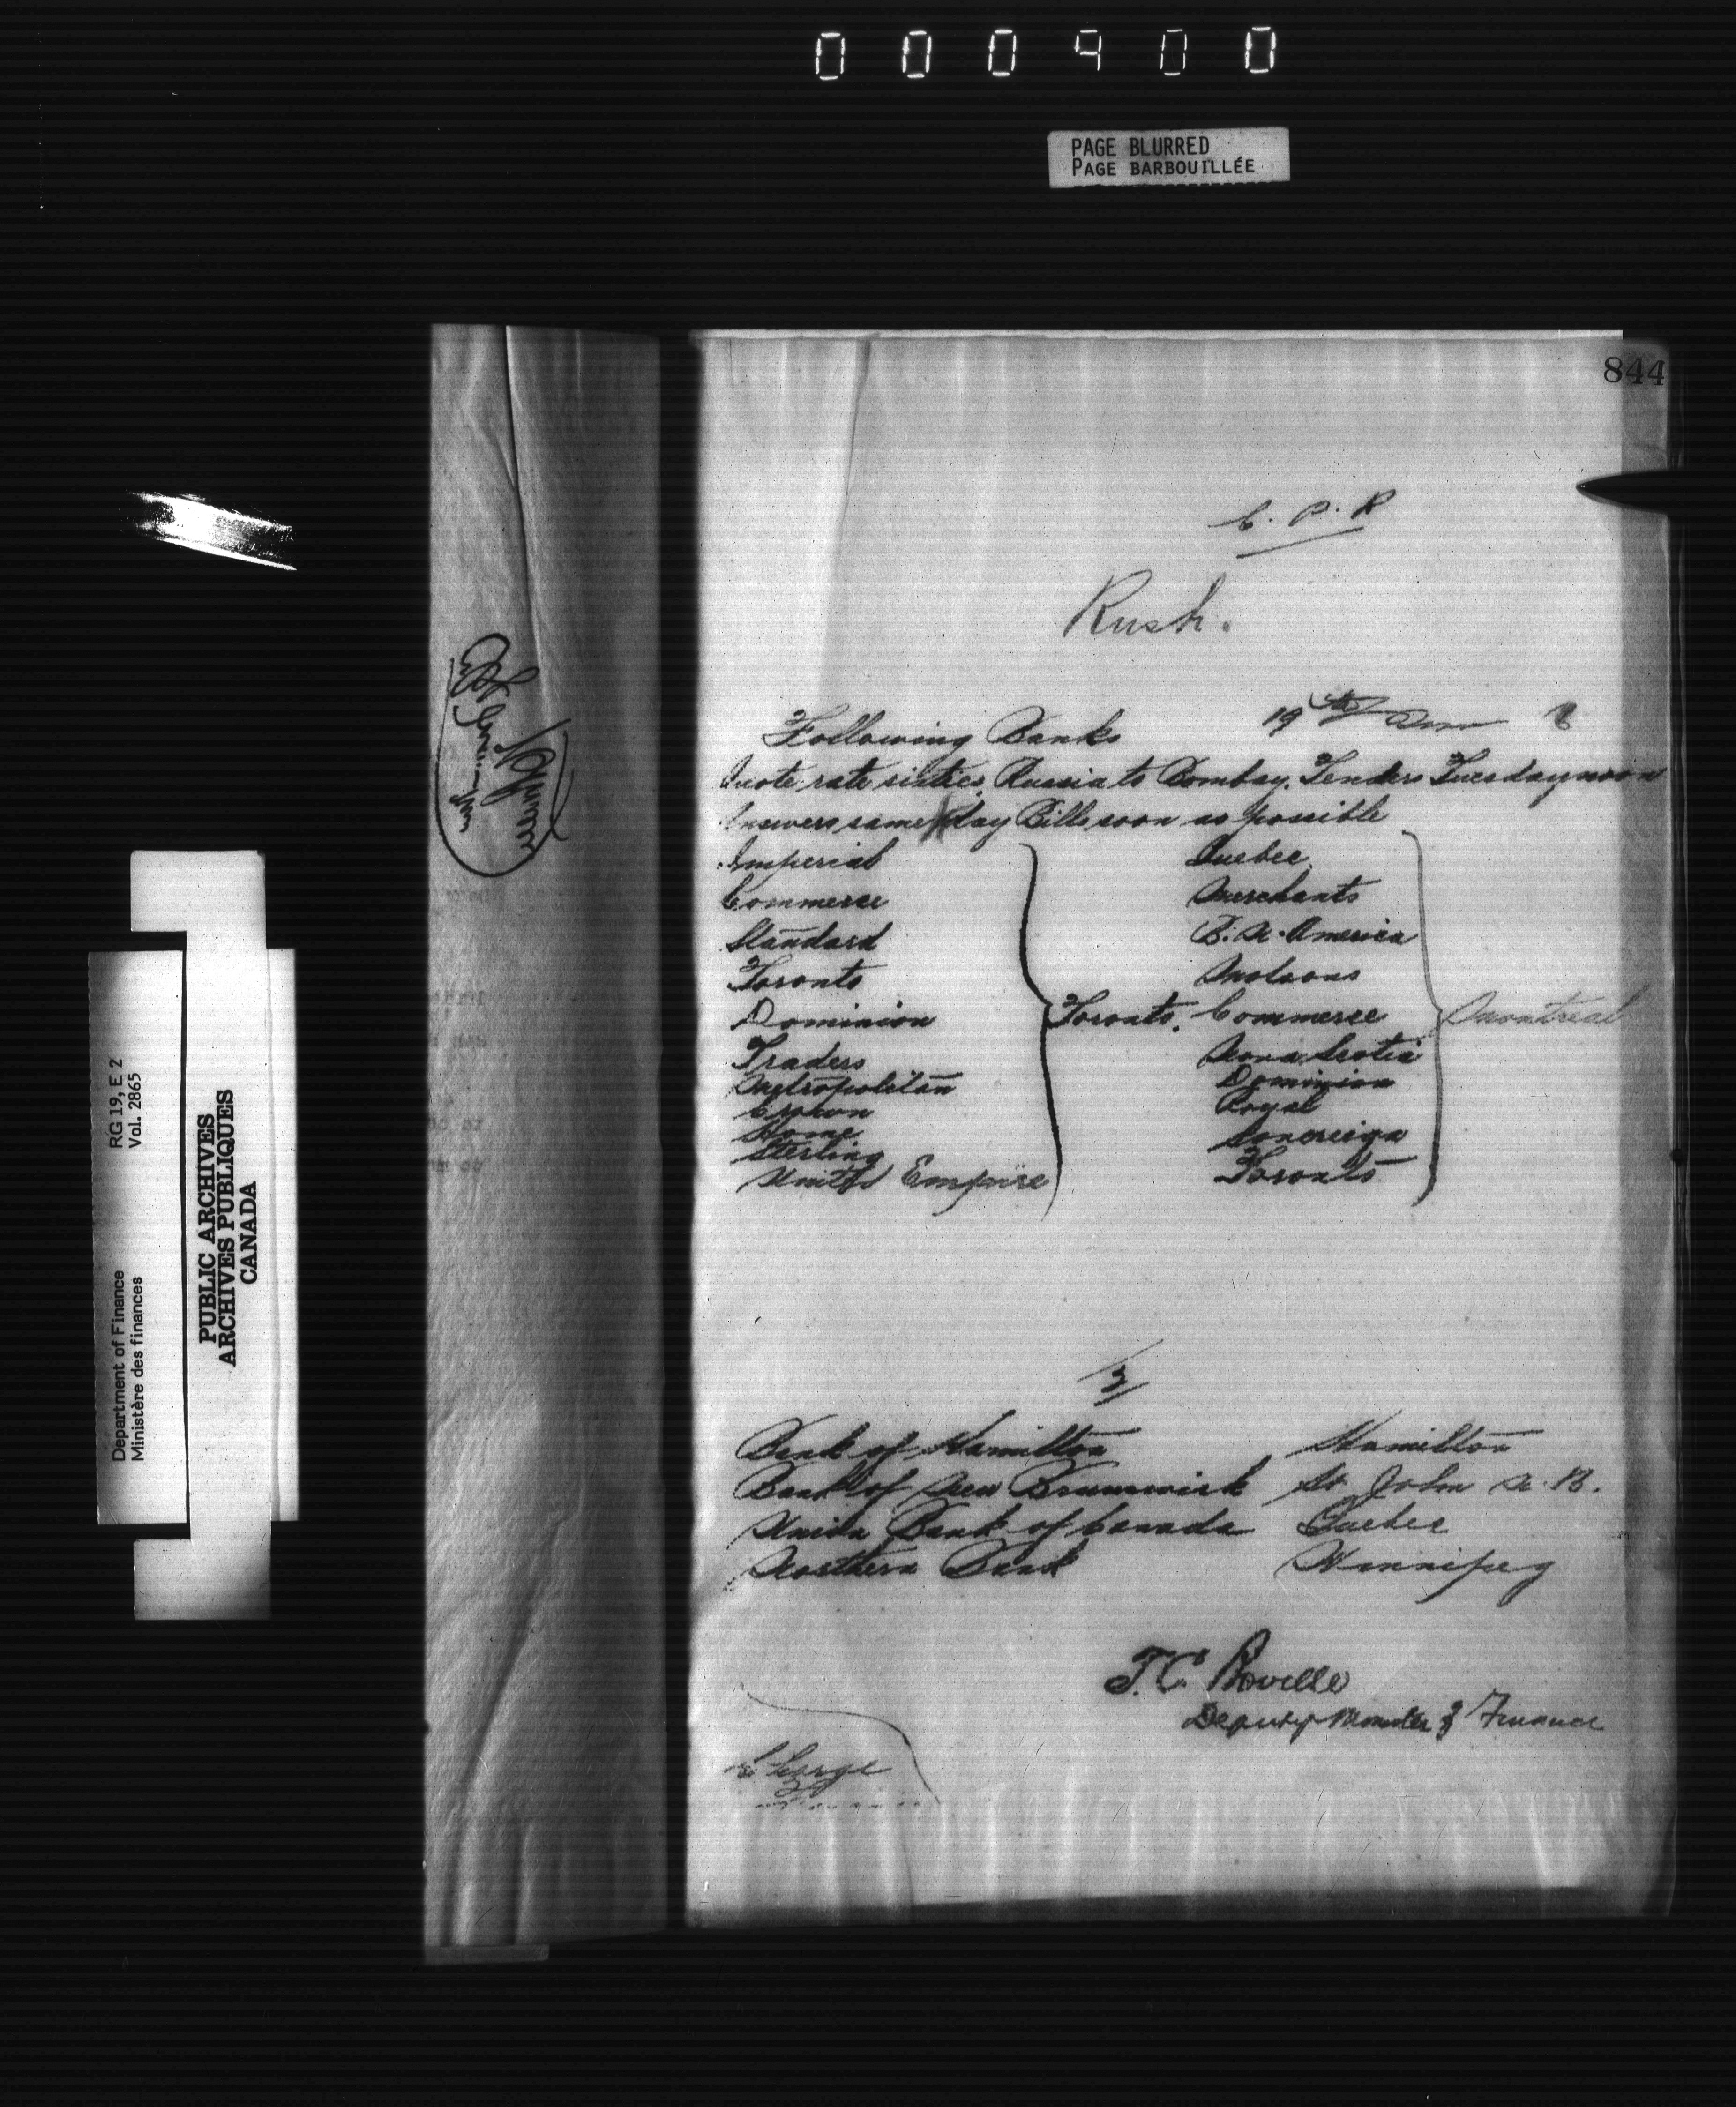 000900
PAGE BLURRED
PAGE BARBOUILLÉE
844
C. P. R
Rush.
19th
Following Banks
Quote rate sixties, Russia to Bombay. Tenders Tuesday noon
Answers same day Bills soon as possible
Imperial
Commerce
Standard
Toronto
Dominion
Traders
Metropolitan
Crown
Home
Sterling
United Empire
Toronto.
Quebec
Merchants
B. N. America
Molsons
Commerce
Nova Scotia
Dominion
Royal
Sovereign
Toronto
Montreal
Bank of Hamilton Hamilton
Bank of New Brunswick St John N. B.
Union Bank of Canada Quebec
Northern Bank Winnipeg
T. C. Boville
Deputy Minister of Finance
Charge
Department of Finance RG 19, E 2
Ministère des finances Vol. 2865
PUBLIC ARCHIVES
ARCHIVES PUBLIQUES
CANADA